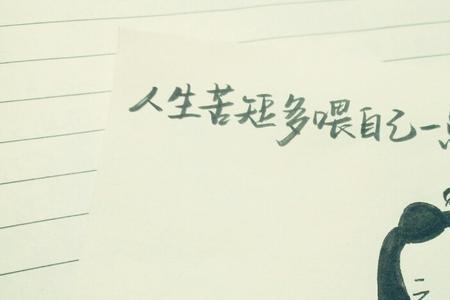 人生苦短多喂自己一